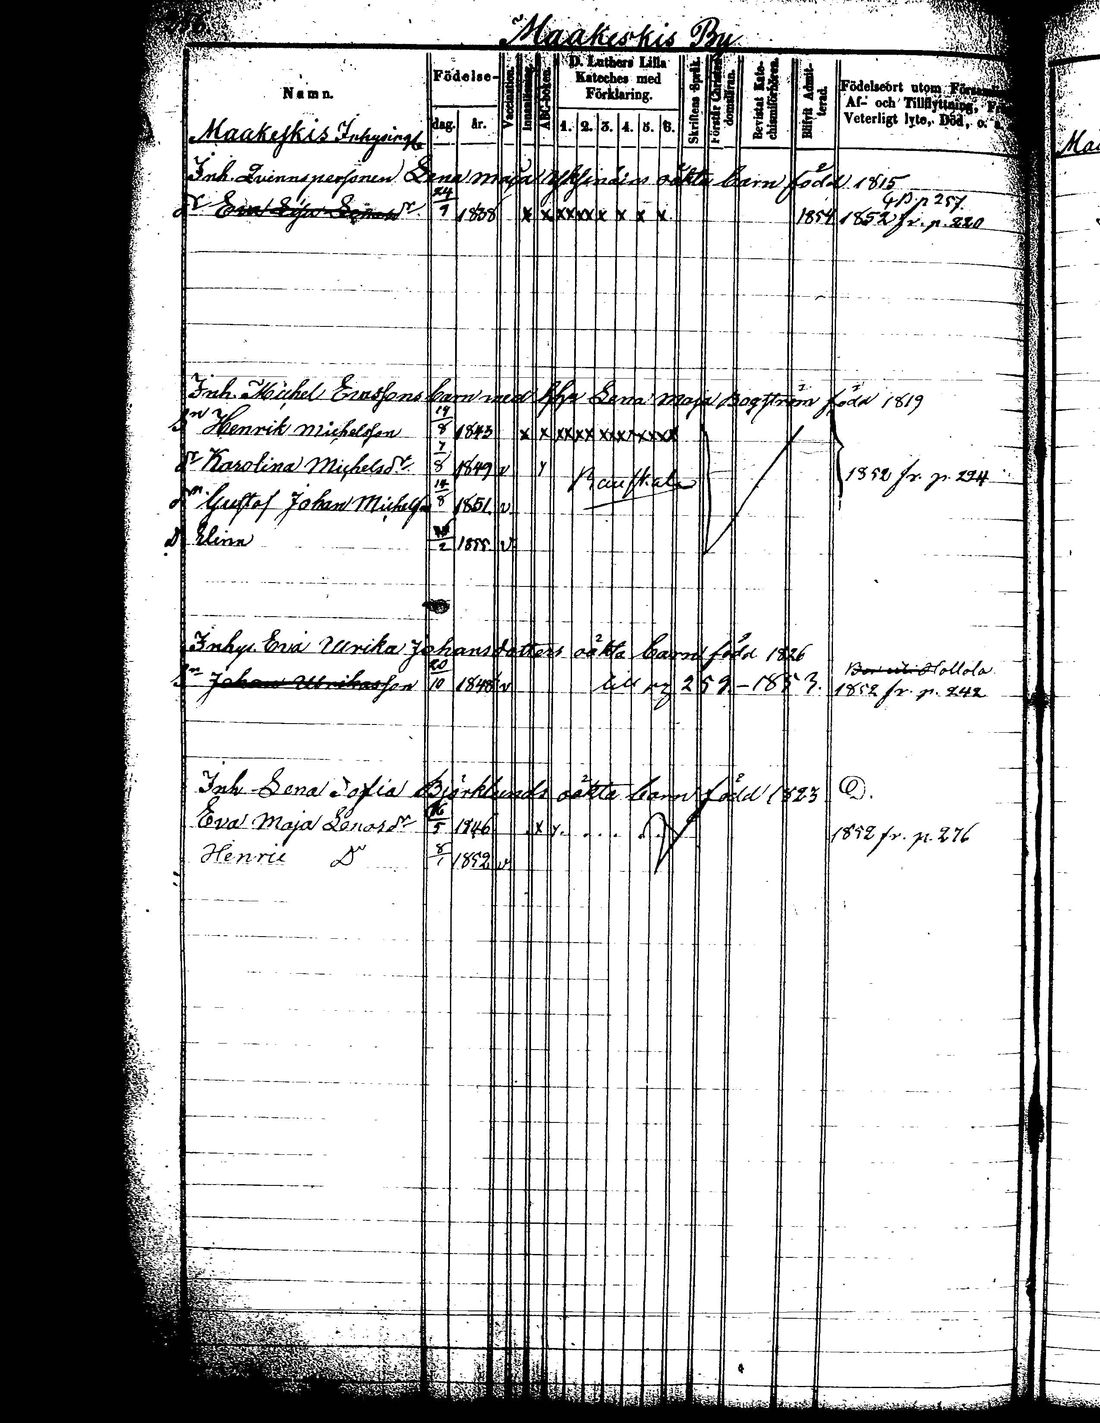 Maakeskis By
Namn.
Födelse-
dag. år.
Vaccination.
Innanläsning.
ABC-boken.
D. Luthers Lilla Kateches med Förklaring.
1. 2. 3. 4. 5. 6.
Skriftens Språk.
Förstår Christendomsläran.
Bevistat Katechismiförhören.
Blifvit Admitterad.
Födelseort utom
Af- och Tillflyttning,
Veterligt lyte, Död, o. s.
Maakeskis Inhysing
Inh. Qvinnspersonen Lena Maja oäkta barn född 1815
dr Eva 24/9 1838 x x x x x x x x x 1854 1852 fr. p. 220
p 257
Inh. Michel Erikssons barn med Lena Maja Bogström född 1819
Sn Henrik Michelsson 19/8 1843 x x x x x x x x x x x
dr Karolina Michelsdr 7/8 1849 v 1852 fr. p. 224
Gustof Johan Michelsson 14/8 1851 v
D Elina /2 1855 v
Inhys Eva Ulrika Johansdotters oäkta barn född 1826
Hollola
Sn Johan Ulrikasson 20/10 1848 v till pg 259 - 1853. 1852 fr. p. 242
Inh Lena Sofia Björklunds oäkta barn född 1823
Eva Maja Lenasdr 16/5 1846 x 1852 fr. p. 276
Henric D 8/1 1852 v